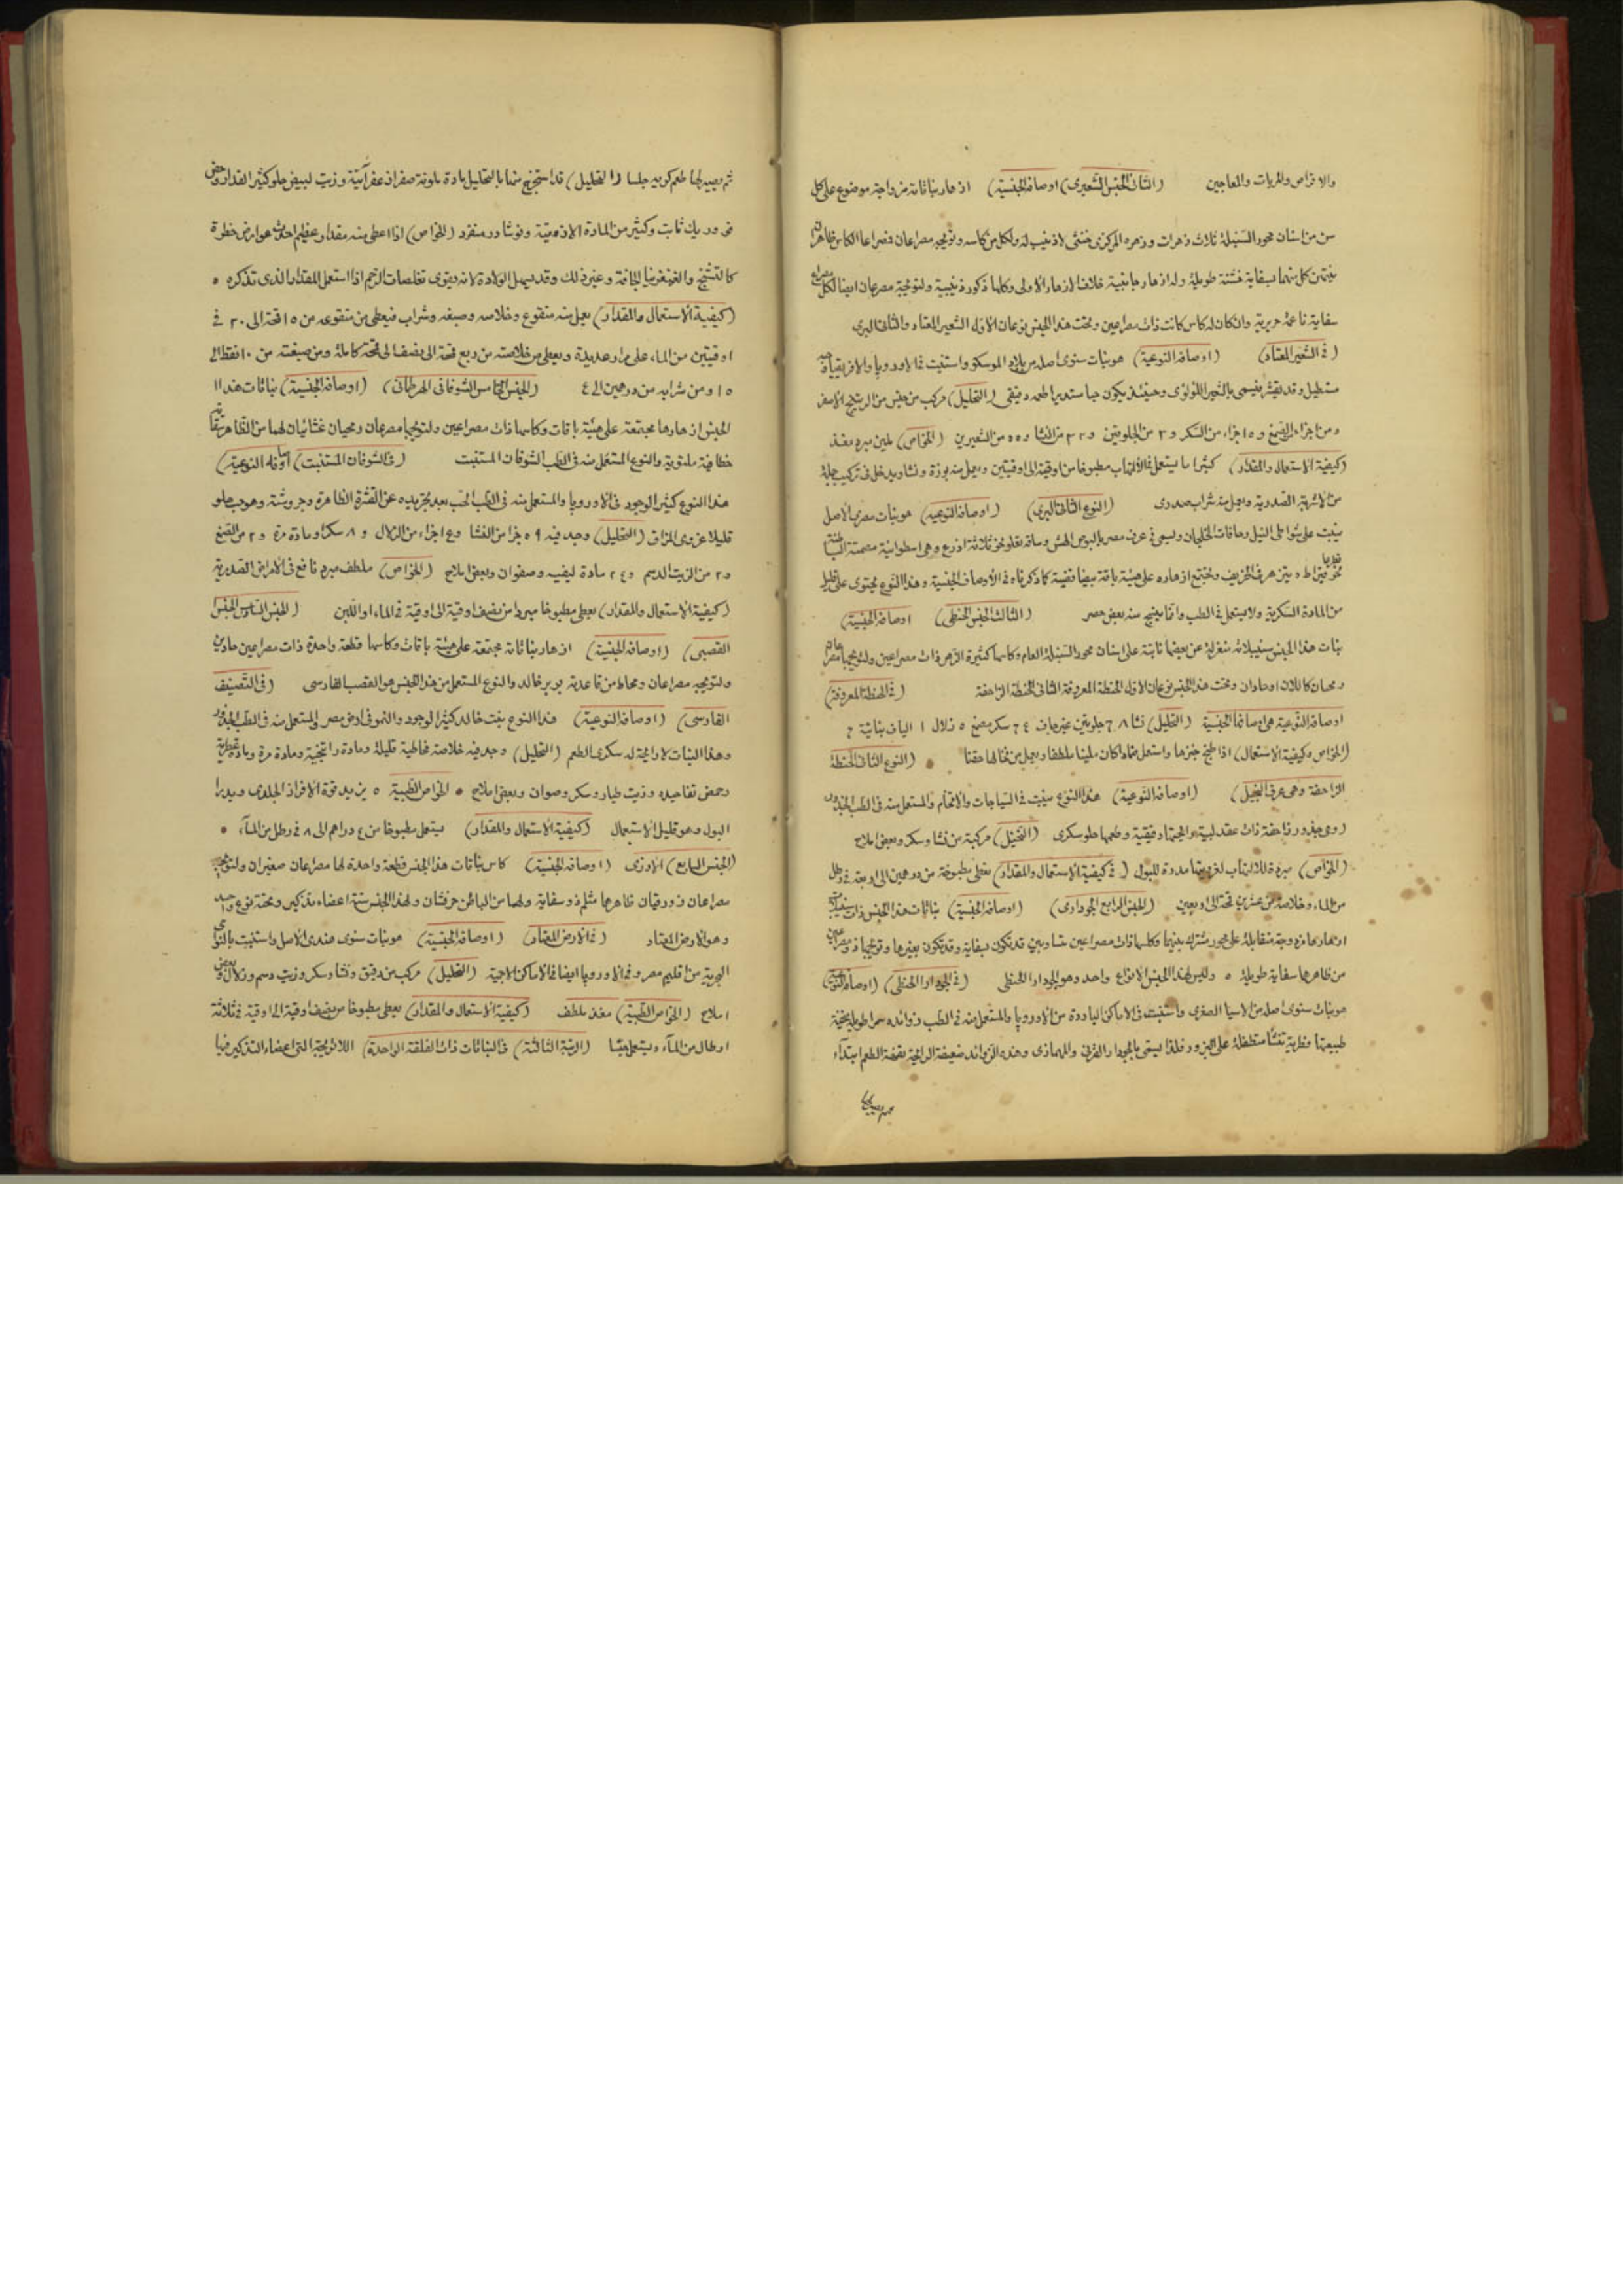 والاقراص والمربات والمعاجين (الثانى الجنس الشعيرى) (اوصافه الجنسية) ازهار نباتاته مزدوجة موضوع على كل
سن من اسنان محور السنبلة ثلاث زهرات وزهره المركزى خنثى لا ذنيب له ولكل من كاسه وتويجه مصراعان فمصراعا الكاس ظاهران
ينتهى كل منهما بسفاية خشنة طويلة وله ازهار جانبية خلاف الازهار الاولى وكلها ذكور ذنيبية ولتويجه مصرعان ايضا لكل مصراع
سفاية ناعمة حريرية وان كان له كاس كانت ذات مصراعين وتحت هذا الجنس نوعان الاول الشعير المعتاد والثانى البرى
(فى الشعير المعتاد) (اوصافه النوعية) هو نبات سنوى اصله من بلاد الموسكو واستنبت فى الاوروپا والافريقيا وحبه
مستطيل وقد يقشر فيسمى بالشعير اللؤلؤى وحينئذ يكون حبا مستديرا طعمه دقيقى (التحليل) مركب من جنس من الراتنج الاصفر
ومن اجزاء الصمغ و١٥ اجزاء من السكر و٣ من الجلوتين و٣٢ من النشا و٥٥ من الشعيرين (الخواص) ملين مبرد مغذ
(كيفية الاستعمال والمقدار) كثيرا ما يستعمل فى الالتهاب مطبوخا من اوقية الى اوقيتين ويعمل منه بوزة ونشا ويدخل فى تركيب جملة
من الاشربة الصدرية ويعمل منه شراب صدرى (النوع الثانى البرى) (اوصافه النوعية) هو نبات مصرى الاصل
ينبت على شواطى النيل وحافات الخلجان ويسمى فى عرف مصر بالبوص الهش وساقه تعلو نحو ثلاثة اذرع وهى اسطوانية مصمتة
نحو قيراط ويتزهر فى الخريف وتجتمع ازهاره على هيئة باقة بيضا فضية كما ذكرناه فى الاوصاف الجنسية وهذا النوع يحتوى على قليل
من المادة السكرية ولا يستعمل فى الطب وانما ينسج منه بعض حصر (الثالث الجنس الحنطى) اوصافه الجنسية)
نبات هذا الجنس سنيبلاته منعزلة عن بعضها ثابتة على اسنان محور السنبلة العام وكاسها كثيرة الزهر ذات مصراعين ولتويجها مصراعان
ومحيان كاملان او حادان وتحت هذا الجنس نوعان الاول الحنطة المعروفة الثانى الحنطة الزاحفة (فى الحنطة المعروفة)
اوصافه النوعية هى اوصافها الجنسية (التحليل) نشا ٦٨ جلوتين غير جاف ٢٤ سكر صمغ ٥ زلال ١ الياف نباتية ٢
(الخواص وكيفية الاستعمال) اذا طبخ خبزها واستعمل ضمادا كان ملينا ملطفا ويعمل من نخالها حقنا (النوع الثانى الحنطة
الزاحفة وهى عرق النجيل) (اوصافه النوعية) هذا النوع ينبت فى السياجات والاتخام والمستعمل منه فى الطب الجذور
وهى جذور زاحفة ذات عقد لبية رائحتها دقيقية وطعمها حلو سكرى (التحليل) مركبة من نشا وسكر وبعض املاح
(الخواص) مبردة للالتهاب لغزويتها مدرة للبول (فى كيفية الاستعمال والمقدار) تعطى مطبوخة من درهمين الى اربعة فى رطل
من الماء وخلاصة من عشرين قمحة الى اربعين (الجنس الرابع الجودارى) (اوصافه الجنسية) نباتات هذا الجنس ذات سنبلة
ازهارها مزدوجة متقابلة على محور مشترك بينها وكلها ذات مصراعين متساويين قد تكون بسفاية وقد تكون بغيرها وتويجها ذو مصراعين
من ظاهرهما سفاية طويلة ٥ وليس لهذا الجنس الا نوع واحد وهو الجودار الحنطى (فى الجودار الحنطى) (اوصافه النوعية)
هو نبات سنوى اصله من الاسيا الصغرى واستنبت فى الاماكن الباردة من الاوروپا والمستعمل منه فى الطب زوائده سمرا طويلة منحنية
طبيعتها فطرية تنشأ متطفلة على البزور فلذا يسمى بالجودار القرنى والمهمازى وهذه الزوائد ضعيفة الرائحة تفهة الطعم ابتداء
ثم يصير لها
ثم يصير لها طعم كريه جلسا (التحليل) قد استخرج منها بالتحليل مادة ملونة صفرا زعفرانية وزيت ابيض حلو كثير المقدار وحمض
فوردريك ثابت وكثير من المادة الازوتية ونوشادر منفرد (الخواص) اذا اعطى منه مقدار عظيم احدث عوارض خطرة
كالتشنج والغنغرينا الجافة وغير ذلك وقد يسهل الولادة لانه يقوى تقلصات الرحم اذا استعمل المقدار الذى نذكره ٥
(كيفية الاستعمال والمقدار) يعمل منه منقوع وخلاصة وصبغة وشراب فيعطى من منقوعه من ١٥ قمحة الى ٣٠ فى
اوقيتين من الماء على مرار عديدة ويعطى من خلاصته من ربع قمحة الى نصف الى قمحة كاملة ومن صبغته من ١٠ نقط الى
١٥ ومن شرابه من درهمين الى ٤ (الجنس الخامس الشوفانى الهرطمانى) (اوصافه الجنسية) نباتات هذا
الجنس ازهارها مجتمعة على هيئة باقات وكاسها ذات مصراعين ولتويجها مصرعان ومحيان غشائيان لهما من الظاهر سفاية
خطافية ملتوية والنوع المستعمل منه فى الطب الشوفان المستنبت (فى الشوفان المستنبت) (اوصافه النوعية)
هذا النوع كثير الوجود فى الاوروپا والمستعمل منه فى الطب الحب بعد تجريده عن القشرة الظاهرة وجروشته وهو حب حلو
قليلا غروى المذاق (التحليل) وجد فيه ٥٩ جزا من النشا و٤ اجزاء من الزلال و٨ سكرا ومادة مرة و٢ من الصمغ
و٢ من الزيت الدسم و٢٤ مادة ليفية وصفوان وبعض املاح (الخواص) ملطف مبرد نافع فى الامراض الصدرية
(كيفية الاستعمال والمقدار) يعطى مطبوخا مبردا من نصف اوقية الى اوقية فى الماء او اللبن (الجنس السادس الجنس
القصبى) (اوصافه الجنسية) ازهار نباتاته مجتمعة على هيئة باقات وكاسها قطعة واحدة ذات مصراعين حادين
ولتويجه مصراعان ومحاط من قاعدته بوبر خالد والنوع المستعمل من هذا الجنس هو القصب الفارسى (فى القصب
الفارسى) (اوصافه النوعية) هذا النوع نبت خالد كثير الوجود والنمو فى ارض مصر والمستعمل منه فى الطب الجذور
وهذا النبات لا رائحة له سكرى الطعم (التحليل) وجد فيه خلاصة مخاطية قليلة ومادة راتنجية ومادة مرة ومادة عطرية
وحمض تفاحيه وزيت طيار وسكر وصوان وبعض املاح • الخواص الطبية ٥ يزيد قوة الافراز الجلدى ويدرا
البول وهو قليل الاستعمال (كيفية الاستعمال والمقدار) يستعمل مطبوخا من ٤ دراهم الى ٨ فى رطل من الماء •
(الجنس السابع) الارزى (اوصافه الجنسية) كاس نباتات هذا الجنس قطعة واحدة لها مصراعان صغيران ولتويجه
مصراعان زورقيان ظاهرهما مثلم ذو سفاية ولهما من الباطن حرفشان ولهذا الجنس ستة اعضاء تذكير وتحته نوع واحد
وهو الارض المعتاد (فى الارض المعتاد) (اوصافه الجنسية) هو نبات سنوى هندى الاصل واستنبت بالنواحى
البحرية من اقليم مصر وفى الاوروپا ايضا فى الاماكن الاجية (التحليل) مركب من دقيق ونشا وسكر وزيت دسم وزلال وبعض
املاح (الخواص الطبية) مغذ ملطف (كيفية الاستعمال والمقدار) يعطى مطبوخا من نصف اوقية الى اوقية فى ثلاثة
ارطال من الماء ويستعمل حقنا (الرتبة الثالثة) فى النباتات ذات الفلقة الواحدة) اللاتويجية التى اعضاء التذكير فيها